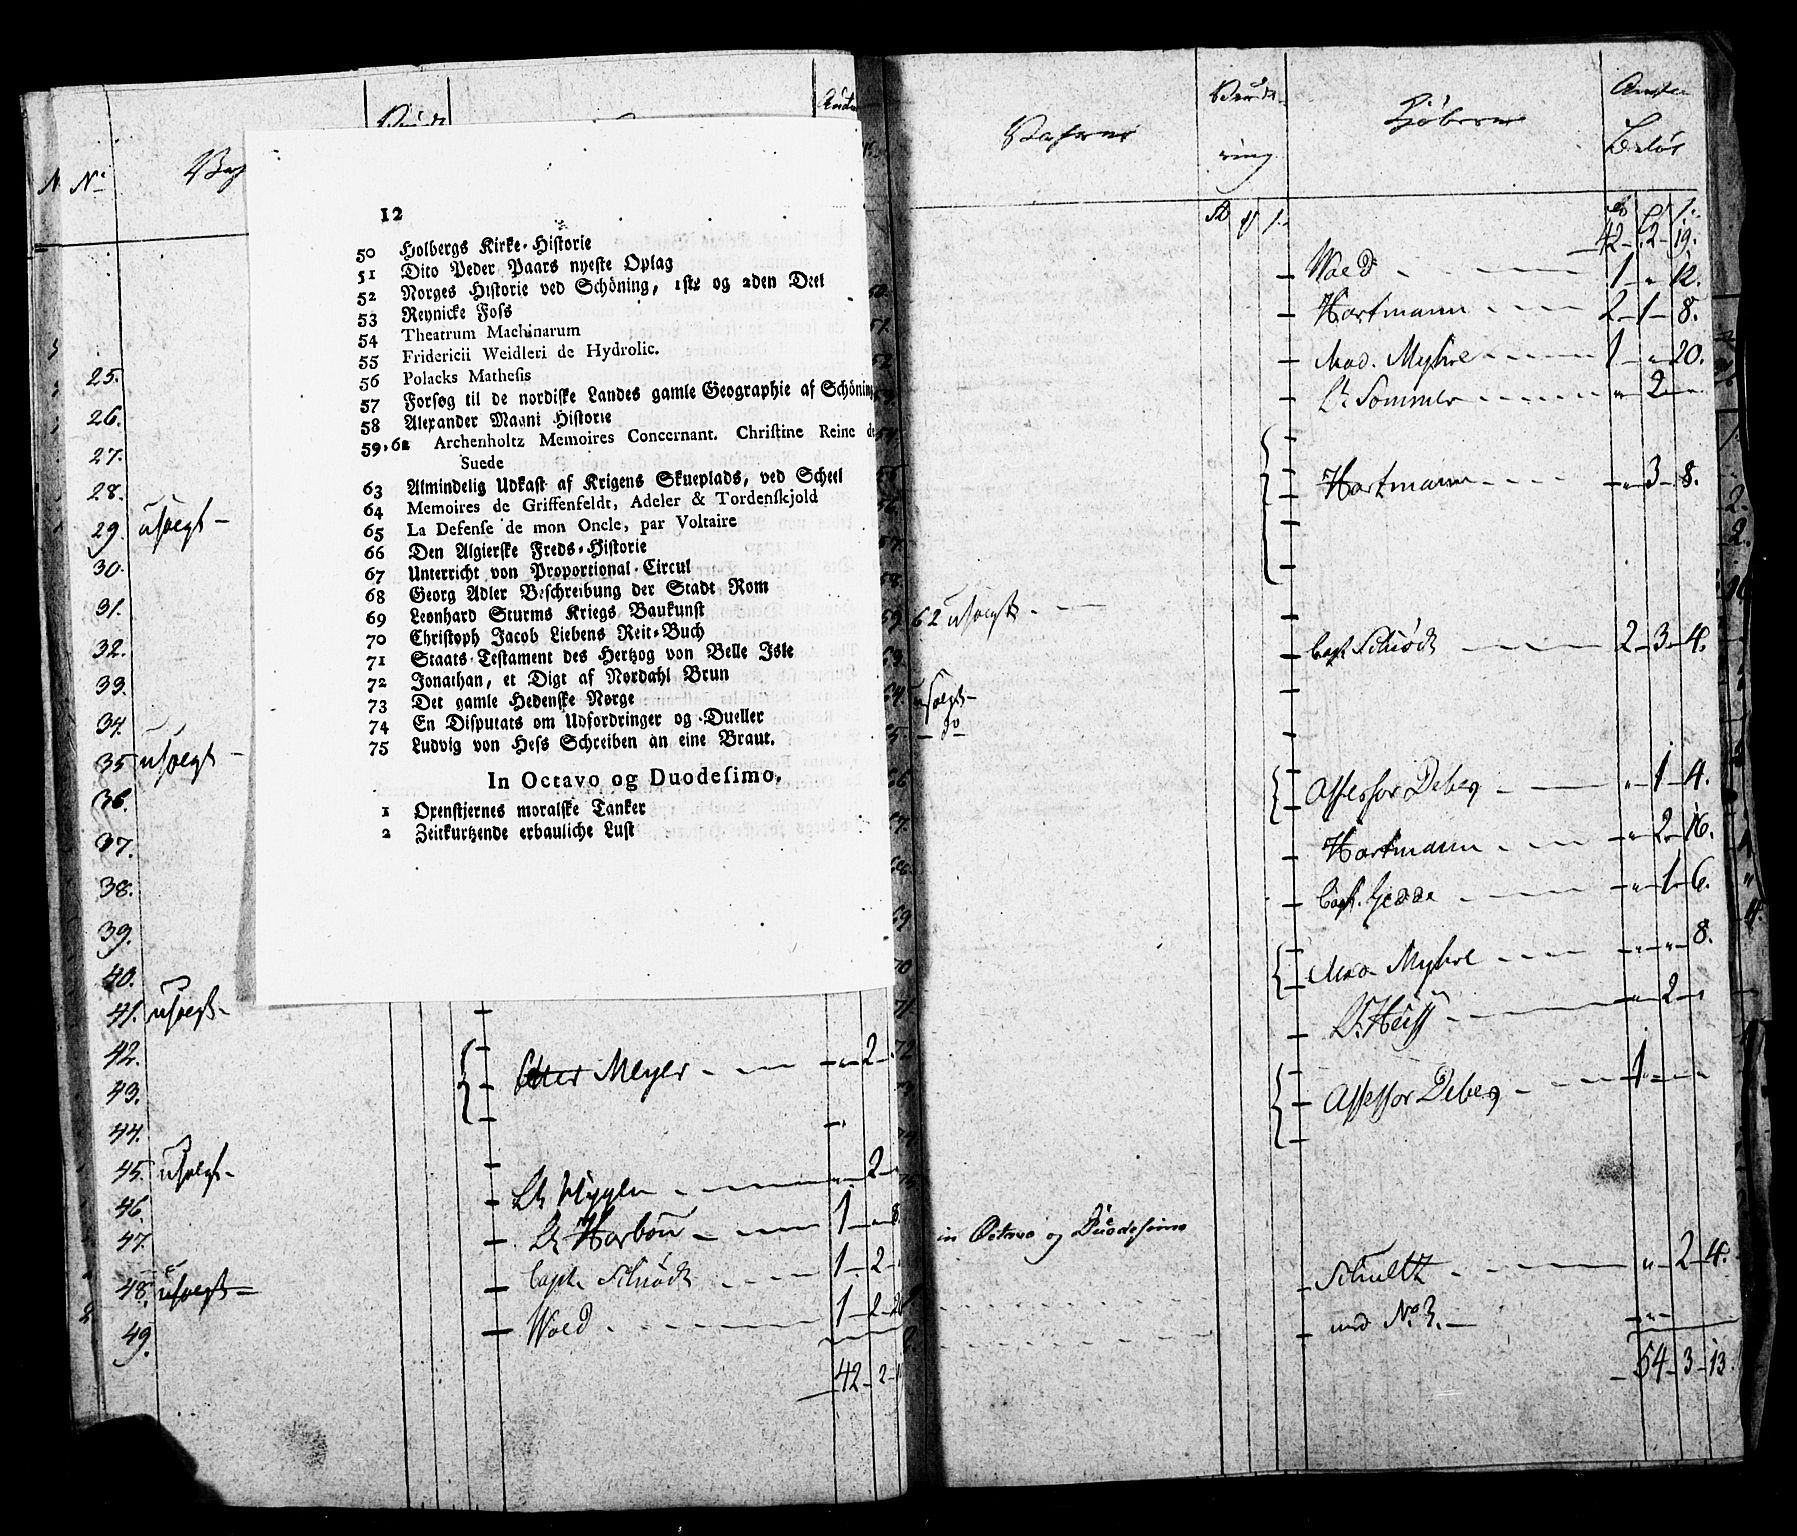 Nº
25.
26.
27.
28.
29. usolgt –
30.
31.
32.
33.
34.
35 usolgt –
36.
37.
38.
39.
40.
41. usolgt –
42.
43.
44.
45. usolgt –
46
47.
48. usolgt –
49.
12
50 Holbergs Kirke-Historie
51 Dito Peder Paars nyeste Oplag
52 Norges Historie ved Schöning, 1ste og 2den Deel
53 Reynicke Foss
54 Theatrum Machinarum
55 Fridericii Weidleri de Hydrolic.
56 Polacks Mathesis
57 Forsøg til de nordiske Landes gamle Geographie af Schöning
58 Alexander Magni Historie
59,62 Archenholtz Memoires Concernant. Christine Reine de
Suede
63 Almindelig Udkast af Krigens Skueplads, ved Scheel
64 Memoires de Griffenfeldt, Adeler & Tordenskjold
65 La Defense de mon Oncle, par Voltaire
66 Den Algierske Freds-Historie
67 Unterricht von Proportional-Circul
68 Georg Adler Beschreibung der Stadt Rom
69 Leonhard Sturms Kriegs Baukunst
70 Christoph Jacob Liebens Reit-Buch
71 Staats-Testament des Hertzog von Belle Isle
72 Jonathan, et Digt af Nordahl Brun
73 Det gamle Hedenske Norge
74 En Disputats om Udfordringer og Dueller
75 Ludvig von Hess Schreiben an eine Braut.
In Octavo og Duodesimo.
1 Oxenstjernes moralske Tanker
2 Zeitkurtzende erbauliche Lust
Meyer – „ – 2 –
Lt Hygen – „ – 2 –
Lt Harboü – 1 – „ – 8
Capt. Schiødt – 1 – 2 –
Wold – 1 – 2 – 20
42 – 2 – 1
Kjøberne
Beløb
42 – 2 – 19.
Wold – 1 – „ – 12.
Hartmann – 2 – 1 – 8.
Mad. Myhre – 1 – „ – 20.
Lt Sommer – „ – 2 –
Hartmann – „ – 3 – 8.
62 usolgt –
Capt. Schiødt – 2 – 3 – 4.
usolgt –
do
Assessor Debes – „ – 1 – 4.
Hartmann – „ – 2 – 16.
Capt. Gedde – „ – 1 – 6.
Mad Myhre – „ – „ – 8.
Lt. Heiss – „ – 2 –
Assessor Debes – 1 – –
in Octavo og Duodesimo
Schultz – „ – 2 – 4.
med No 3. – „ –
54 – 3 – 13.